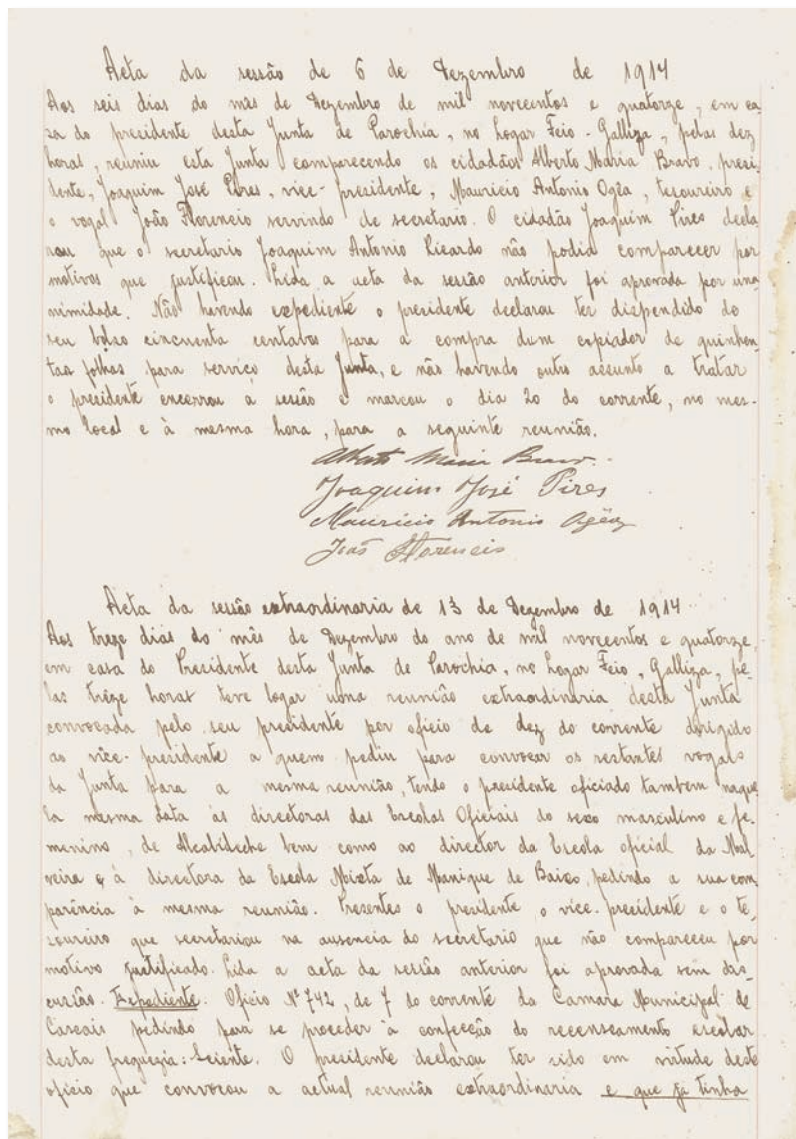 Acta da sessão de 6 de Dezembro de 1914
Aos seis dias do mês de Dezembro de mil novecentos e quatorze, em ca-
za do presidente desta Junta de Parochia, no Logar Feio - Galliza, pelas dez
horas, reuniu esta Junta comparecendo os cidadãos Alberto Maria Bravo, presi-
dente, Joaquim José Pires, vice-presidente, Mauricio Antonio Ogêa, tesoureiro e
o vogal João Florencio servindo de secretario. O cidadão Joaquim Pires decla-
rou que o secretario Joaquim Antonio Ricardo não podia comparecer por
motivos que justificou. Lida a acta da sessão anterior foi aprovada por una-
nimidade. Não havendo expediente o presidente declarou ter dispendido do
seu bolso cincuenta centavos para a compra dum copiador de quinhen-
tas folhas para serviço desta Junta, e não havendo outro assunto a tratar
o presidente encerrou a sessão e marcou o dia 20 do corrente, no mes-
mo local e à mesma hora, para a seguinte reunião.
Alberto Maria Bravo.
Joaquim José Pires
Mauricio Antonio Ogêa
João Florencio
Acta da sessão extraordinaria de 13 de Dezembro de 1914
Aos treze dias do mês de Dezembro do ano de mil novecentos e quatorze,
em casa do Presidente desta Junta de Parochia, no Logar Feio, Galliza, pe-
las treze horas teve logar uma reunião extraordinaria desta Junta
convocada pelo seu presidente por oficio de dez do corrente dirigido
ao vice-presidente a quem pediu para convocar os restantes vogais
da Junta para a mesma reunião, tendo o presidente oficiado tambem naque-
la mesma data às directoras das Escolas Oficiais do sexo masculino e fe-
menino, de Alcabideche bem como ao director da Escola oficial da Mal
veira e à directora da Escola Mixta de Manique de Baixo, pedindo a sua com-
parência à mesma reunião. Presentes o presidente, o vice-presidente e o te-
zoureiro que secretariou na ausencia do secretario que não compareceu por
motivo justificado. Lida a acta da sessão anterior foi aprovada sem dis-
cussão. Expediente: Oficio Nº 742, de 7 do corrente da Camara Municipal de
Cascais pedindo para se proceder à confecção do recenseamento escolar
desta freguezia: Sciente. O presidente declarou ter sido em virtude deste
oficio que convocou a actual reunião extraordinaria e que já tinha